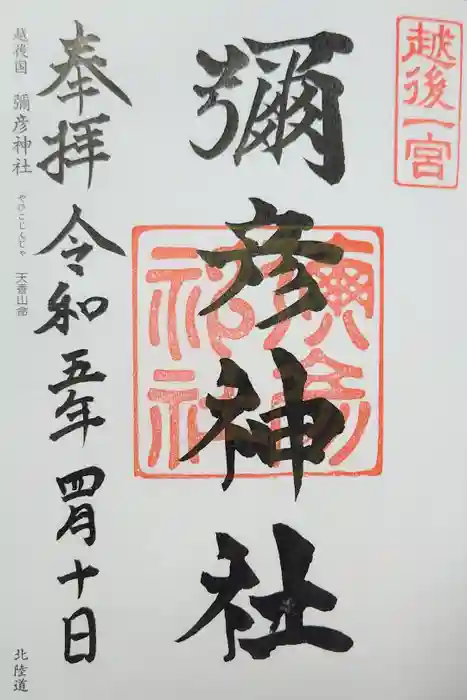 越後一宮
彌彦神社
彌彦神社
奉拝 令和五年四月十日
越後国 彌彦神社 やひこじんじゃ 天香山命 北陸道